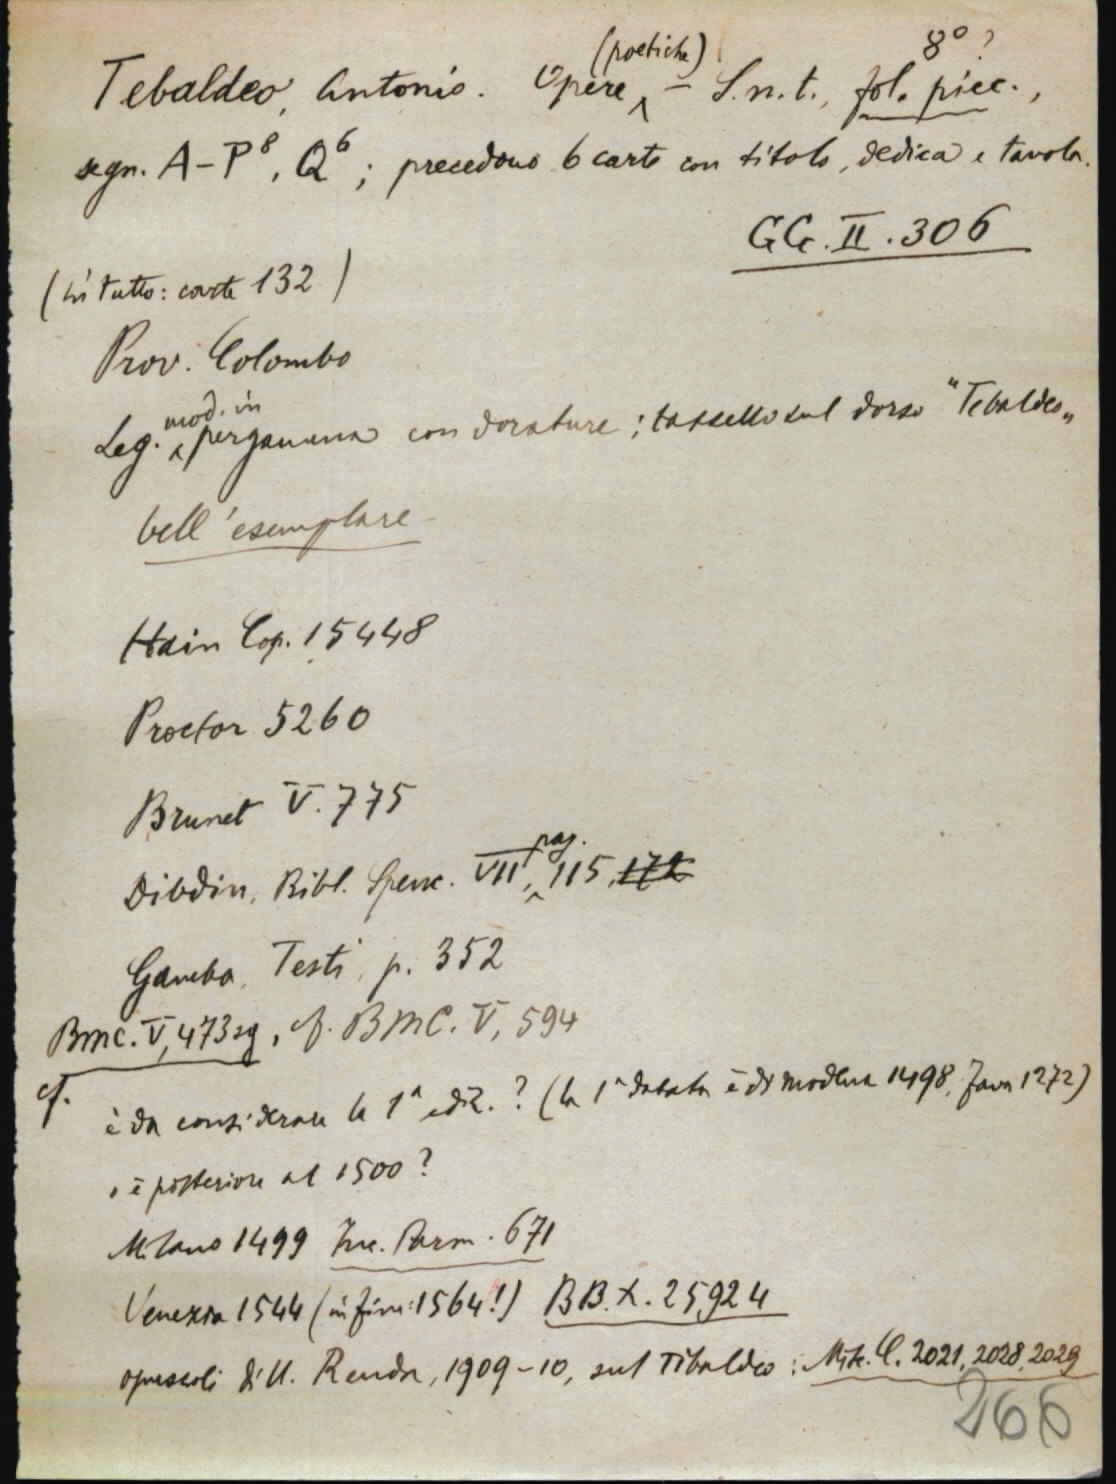 8° ?
(poetiche)
Tebaldeo, Antonio. Opere, – S.n.t., fol. picc.,
segn. A–P⁸, Q⁶; precedono 6 carte con titolo, dedica e tavola.
GG.II.306
(in tutto: carte 132)
Prov. Colombo
mod. in
Leg. pergamena con dorature; tassello sul dorso "Tebaldeo"
bell'esemplare
Hain Cop. 15448
Proctor 5260
Brunet V.775
pag.
Dibdin, Bibl. Spenc. VII, 115, 172
Gamba, Testi, p. 352
BMC. V, 473 sg, cf. BMC. V, 594
cf.
è da considerare la 1ª ediz.? (la 1ª datata è di Modena 1498, Fava 1272)
o è posteriore al 1500?
Milano 1499 Inc. Parm. 671
Venezia 1544 (in fine: 1564!) BB.X.25924
opuscoli di U. Renda, 1909–10, sul Tibaldeo: Misc. C. 2021, 2028, 2029
266